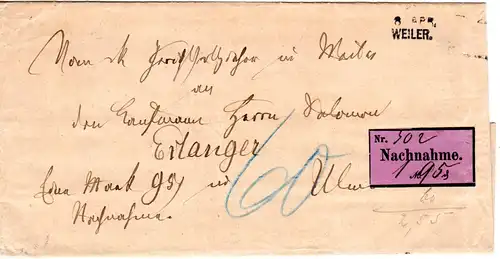 8 APR.
WEILER.
Vom k. Gerichtsvollzieher in Weiler
an
den Kaufmann Herrn Salomon
Erlanger
in Ulm
Eine Mark 95
Nachnahme.
60
Nr. 502
Nachnahme.
1 M 95
60
2,55